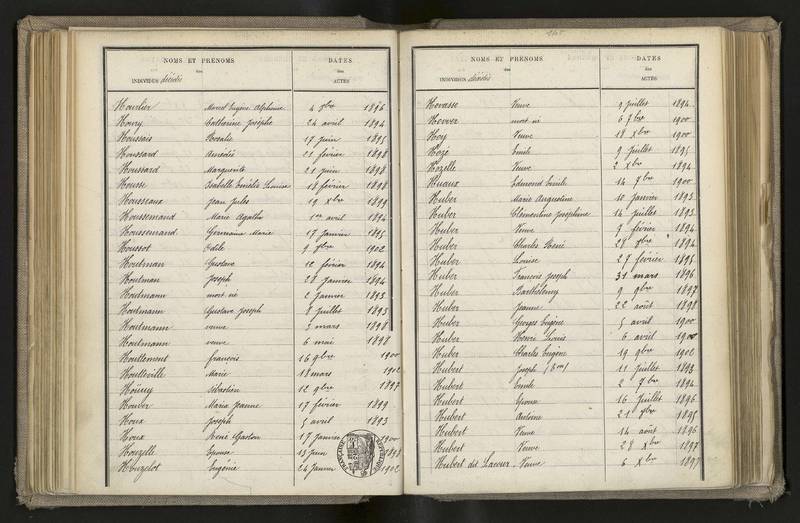 NOMS ET PRÉNOMS DATES
des des
INDIVIDUS décédés ACTES
Hourlier Marcel Eugène Alphonse 4 8bre 1896
Houry Catherine Josèphe 24 avril 1894
Houssais Rosalie 17 juin 1895
Houssard Amédée 21 février 1898
Houssard Marguerite 21 juin 1898
Housse Isabelle Emélie Louise 18 février 1898
Housseaux Jean Jules 19 Xbre 1899
Houssemand Marie Agathe 1er avril 1894
Houssemand Germaine Marie 17 janvier 1895
Houssot Odile 9 9bre 1902
Houtman Gustave 12 février 1894
Houtman Joseph 28 janvier 1894
Houtmann mort né 2 janvier 1893
Houtmann Gustave Joseph 8 juillet 1893
Houtmann veuve 3 mars 1898
Houtmann veuve 6 mai 1898
Houttement françois 16 9bre 1900
Houtteville Marie 18 mars 1902
Houvy Sébastien 12 9bre 1897
Houver Maria Jeanne 17 février 1899
Houx Joseph 5 avril 1893
Houx René Gaston 17 janvier 1900
Houzelle Epouse 13 juin 1893
Houzelot Eugénie 24 janvier 1902
NOMS ET PRÉNOMS DATES
des des
INDIVIDUS décédés ACTES
Hovasse Veuve 9 juillet 1894
Hovver mort né 6 9bre 1900
Hoy Veuve 18 Xbre 1900
Hozé Emile 9 juillet 1895
Hozelle Veuve 2 Xbre 1894
Huaux Edmond Emile 14 7bre 1900
Huber Marie Augustine 10 janvier 1893
Huber Clémentine Joséphine 14 juillet 1893
Huber Veuve 7 février 1894
Huber Charles René 28 9bre 1894
Huber Louise 27 février 1895
Huber François Joseph 31 mars 1896
Huber Barthélemy 9 9bre 1897
Huber Jeanne 22 août 1898
Huber Georges Eugène 5 avril 1900
Huber Henri Louis 6 avril 1900
Huber Charles Eugène 19 9bre 1902
Hubert Joseph 11 juillet 1893
Hubert Emile 2 7bre 1894
Hubert Epoux 16 juillet 1895
Hubert Antoine 21 9bre 1895
Hubert Veuve 14 août 1896
Hubert Veuve 28 Xbre 1897
Hubert dit Lacour Veuve 6 Xbre 1897